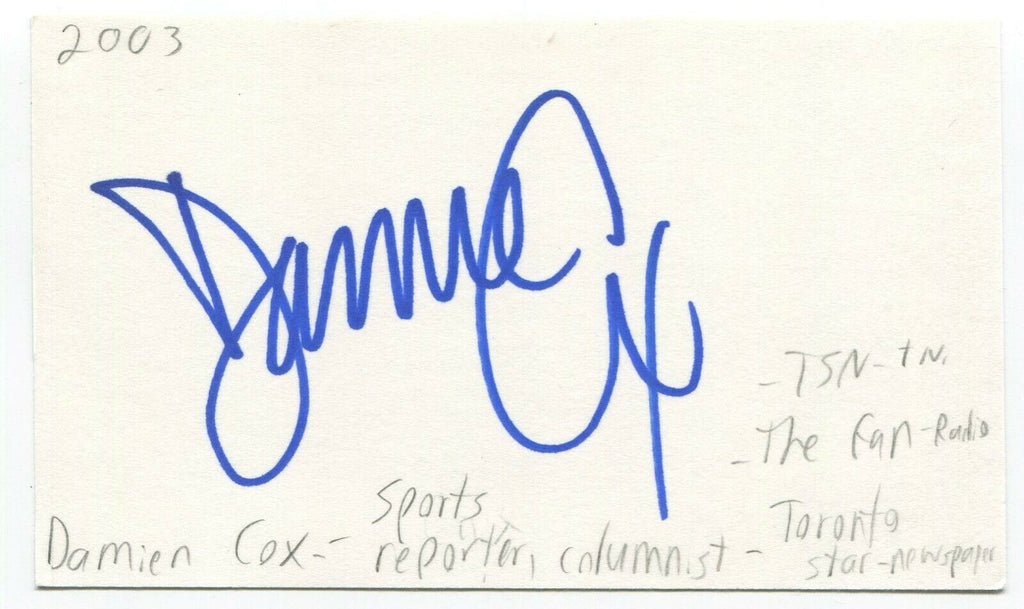 2003
Damien Cox
- TSN - t.v.
- The Fan - Radio
Damien Cox - sports reporter, columnist - Toronto star - newspaper